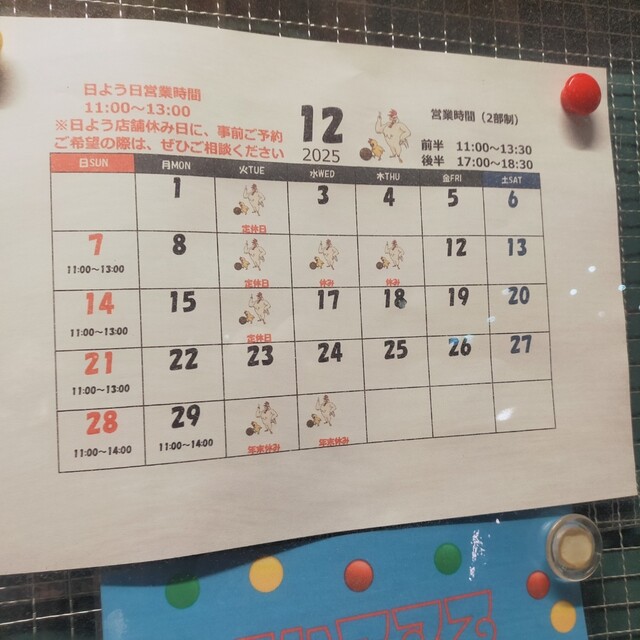 日よう日営業時間
11:00〜13:00
※日よう店舗休み日に、事前ご予約
ご希望の際は、ぜひご相談ください
12
2025
営業時間（2部制）
前半 11:00〜13:30
後半 17:00〜18:30
日SUN 月MON 火TUE 水WED 木THU 金FRI 土SAT
1 3 4 5 6
定休日
7 8 12 13
11:00〜13:00 定休日 休み 休み
14 15 17 18 19 20
11:00〜13:00 定休日
21 22 23 24 25 26 27
11:00〜13:00
28 29
11:00〜14:00 11:00〜14:00 年末休み 年末休み